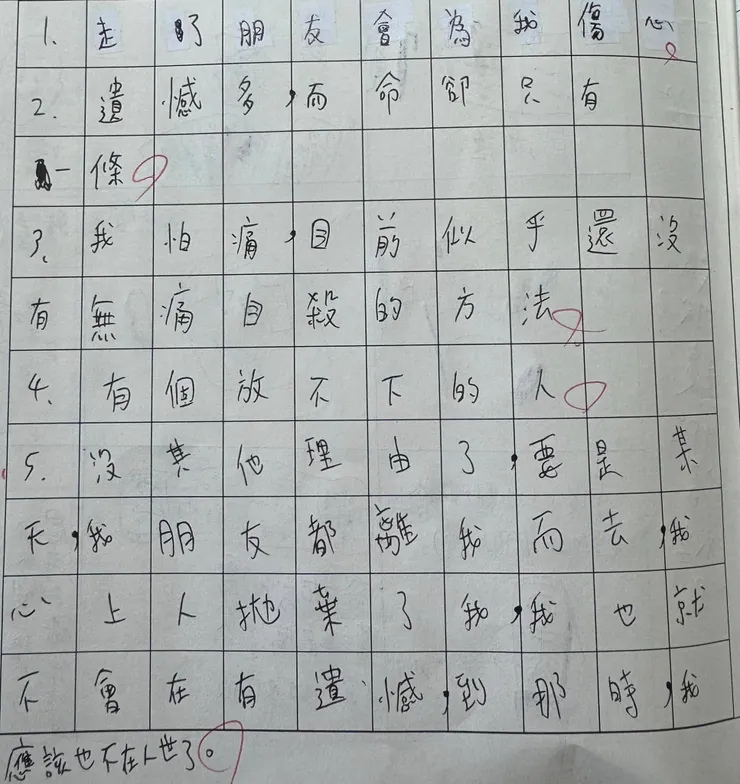 1.走了朋友會為我傷心。
2.遺憾多,而命卻只有
一條。
3.我怕痛,目前似乎還沒
有無痛自殺的方法。
4.有個放不下的人。
5.沒其他理由了,要是某
天,我朋友都離我而去,我
心上人拋棄了我,我也就
不會在有遺憾,到那時,我
應該也不在人世了。